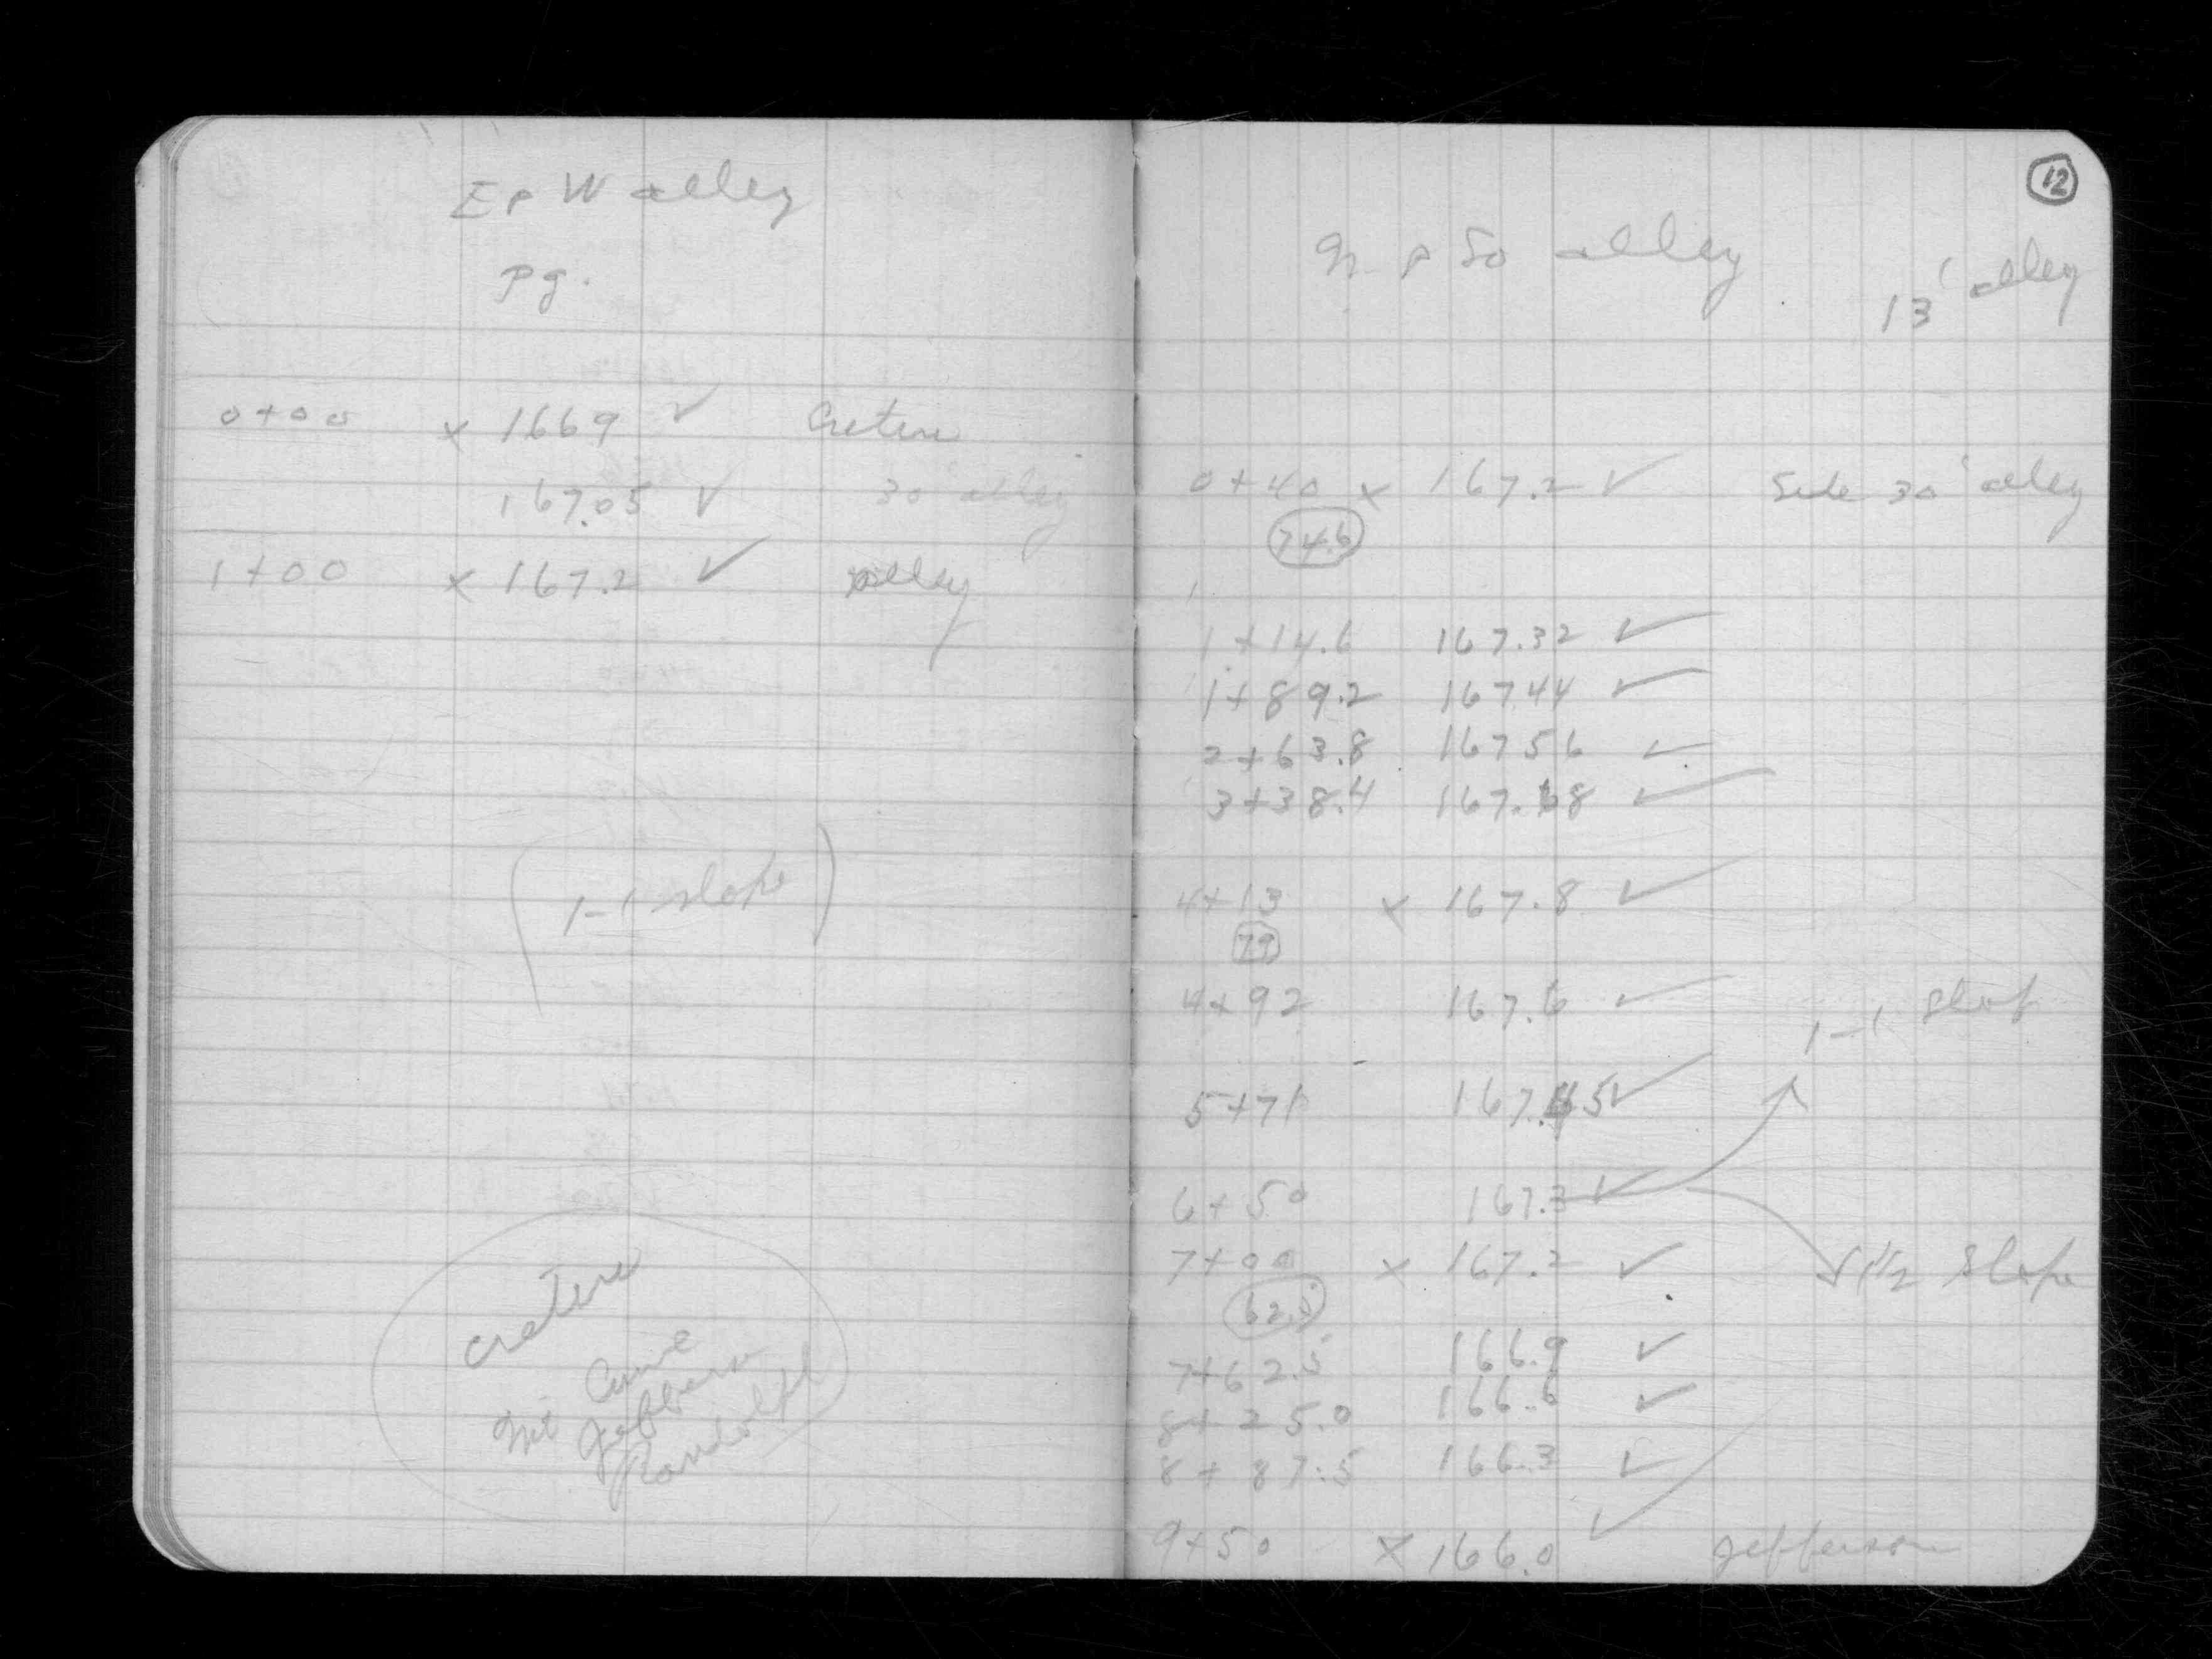 E & W alley
pg.
0+00 x 1669 ✓ Cretin
167.05 ✓ 30 alley
1+00 x 167.2 ✓ alley
(1-1 slope)
Cretin
Jefferson
Randolph
12
N & So alley
13' alley
0+40 x 167.2 ✓ Side 30' alley
74.6
1+14.6 167.32 ✓
1+89.2 16744 ✓
2+63.8 16756 ✓
3+38.4 167.68 ✓
4+13 x 167.8 ✓
79
4+92 167.6 ✓
1-1 slop
5+71 167.45 ✓
6+50 167.3 ✓
7+00 x 167.2 ✓ 1 1/2 Slope
62.5
7+62.5 166.9 ✓
8+25.0 166.6 ✓
8+87.5 166.3 ✓
9+50 x 166.0 ✓ Jefferson